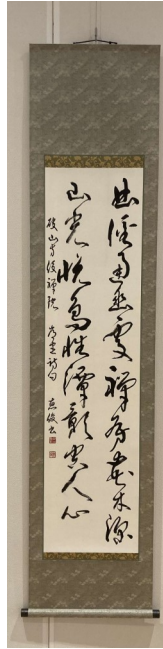 曲徑通幽處禪房花木深
山光悦鳥性潭影空人心
破山寺後禪院 常建詩句 俊書